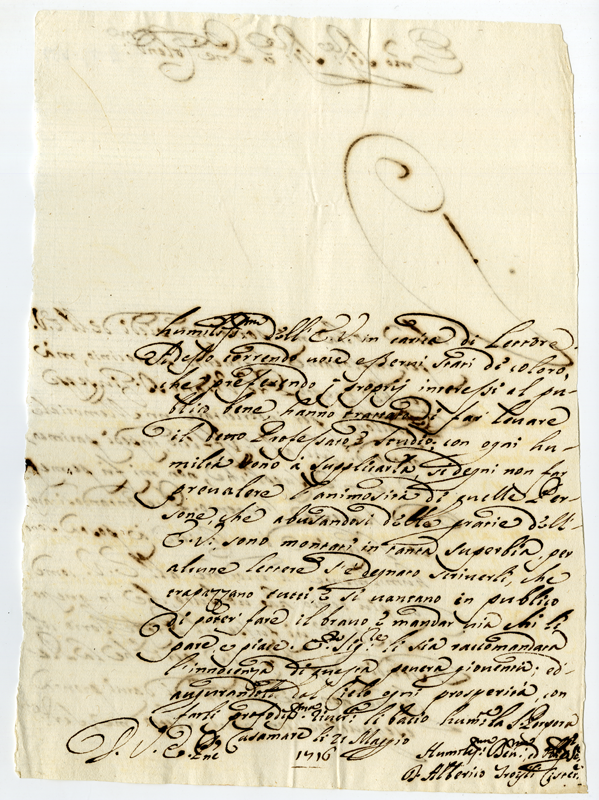 humiliss.mo dell'E.V. in carica di Lettore.
Adesso correndo voce esservi stati di coloro,
che preferendo i proprij interessi al pu-
blico bene, hanno trattato di far levare
il detto Professaro è studio; con ogni hu-
miltà vengo à supplicarla si degni non far
prevalere l'animosità di quelle Per-
sone, che abusandosi delle gratie dell'
E.V. sono montati in tanta superbia, per
alcune lettere s'è degnato scriverli, che
strapazzano tutti, è si vantano in publico
di poter fare il bravo è mandar via chi li
pare, e piace. li sia raccomandata
l'innocenza di questa povera gioventù; ed
augurandoli dal Cielo ogni prosperità, con
farli profondiss.ma river.za li bacio humil.te la S. Porpora
D. V. E. Casamare li 21 Maggio
1716
D. Alberico